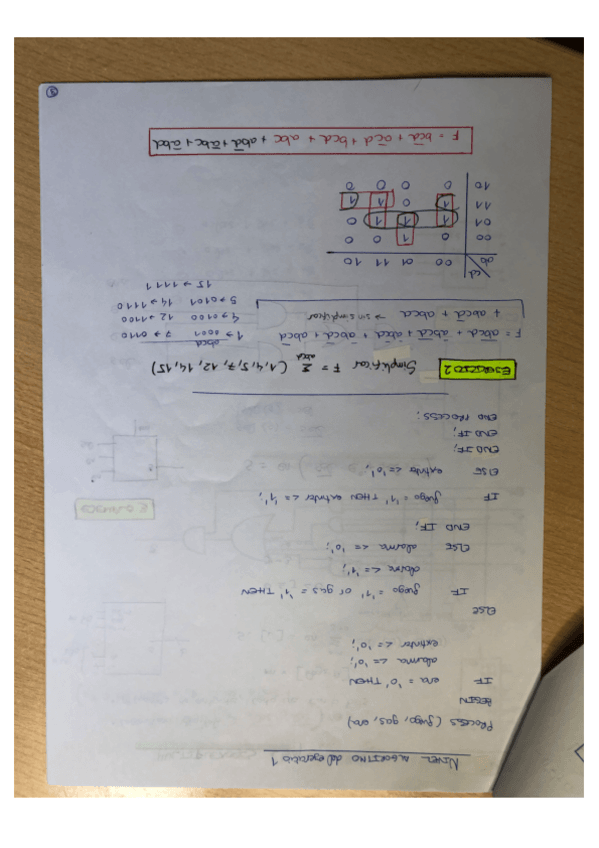 NIVEL ALGORITMO del ejercicio 1
PROCESS (fuego, gas, ena)
BEGIN
IF ena = '0' THEN
alarma <= '0';
extintor <= '0';
ELSE
IF fuego = '1' or gas = '1' THEN
alarma <= '1';
ELSE alarma <= '0';
END IF;
IF fuego = '1' THEN extintor <= '1';
ELSE extintor <= '0';
END IF;
END IF;
END PROCESS;
EJERCICIO 2 Simplificar F = Σ abcd (1,4,5,7,12,14,15)
abcd
F = a̅b̅c̅d + a̅bc̅d̅ + a̅bc̅d + a̅bcd + abc̅d̅ 1→0001 7→0110
+ abcd̅ + abcd → sin simplificar 4→0100 12→1100
5→0101 14→1110
15→1111
ab cd 00 01 11 10
00 0 1 0 0
01 1 1 1 0
11 1 0 1 1
10 0 0 0 0
F = bc̅d̅ + a̅c̅d + bcd + abc + abd̅ + a̅bc̅ + a̅bd
3